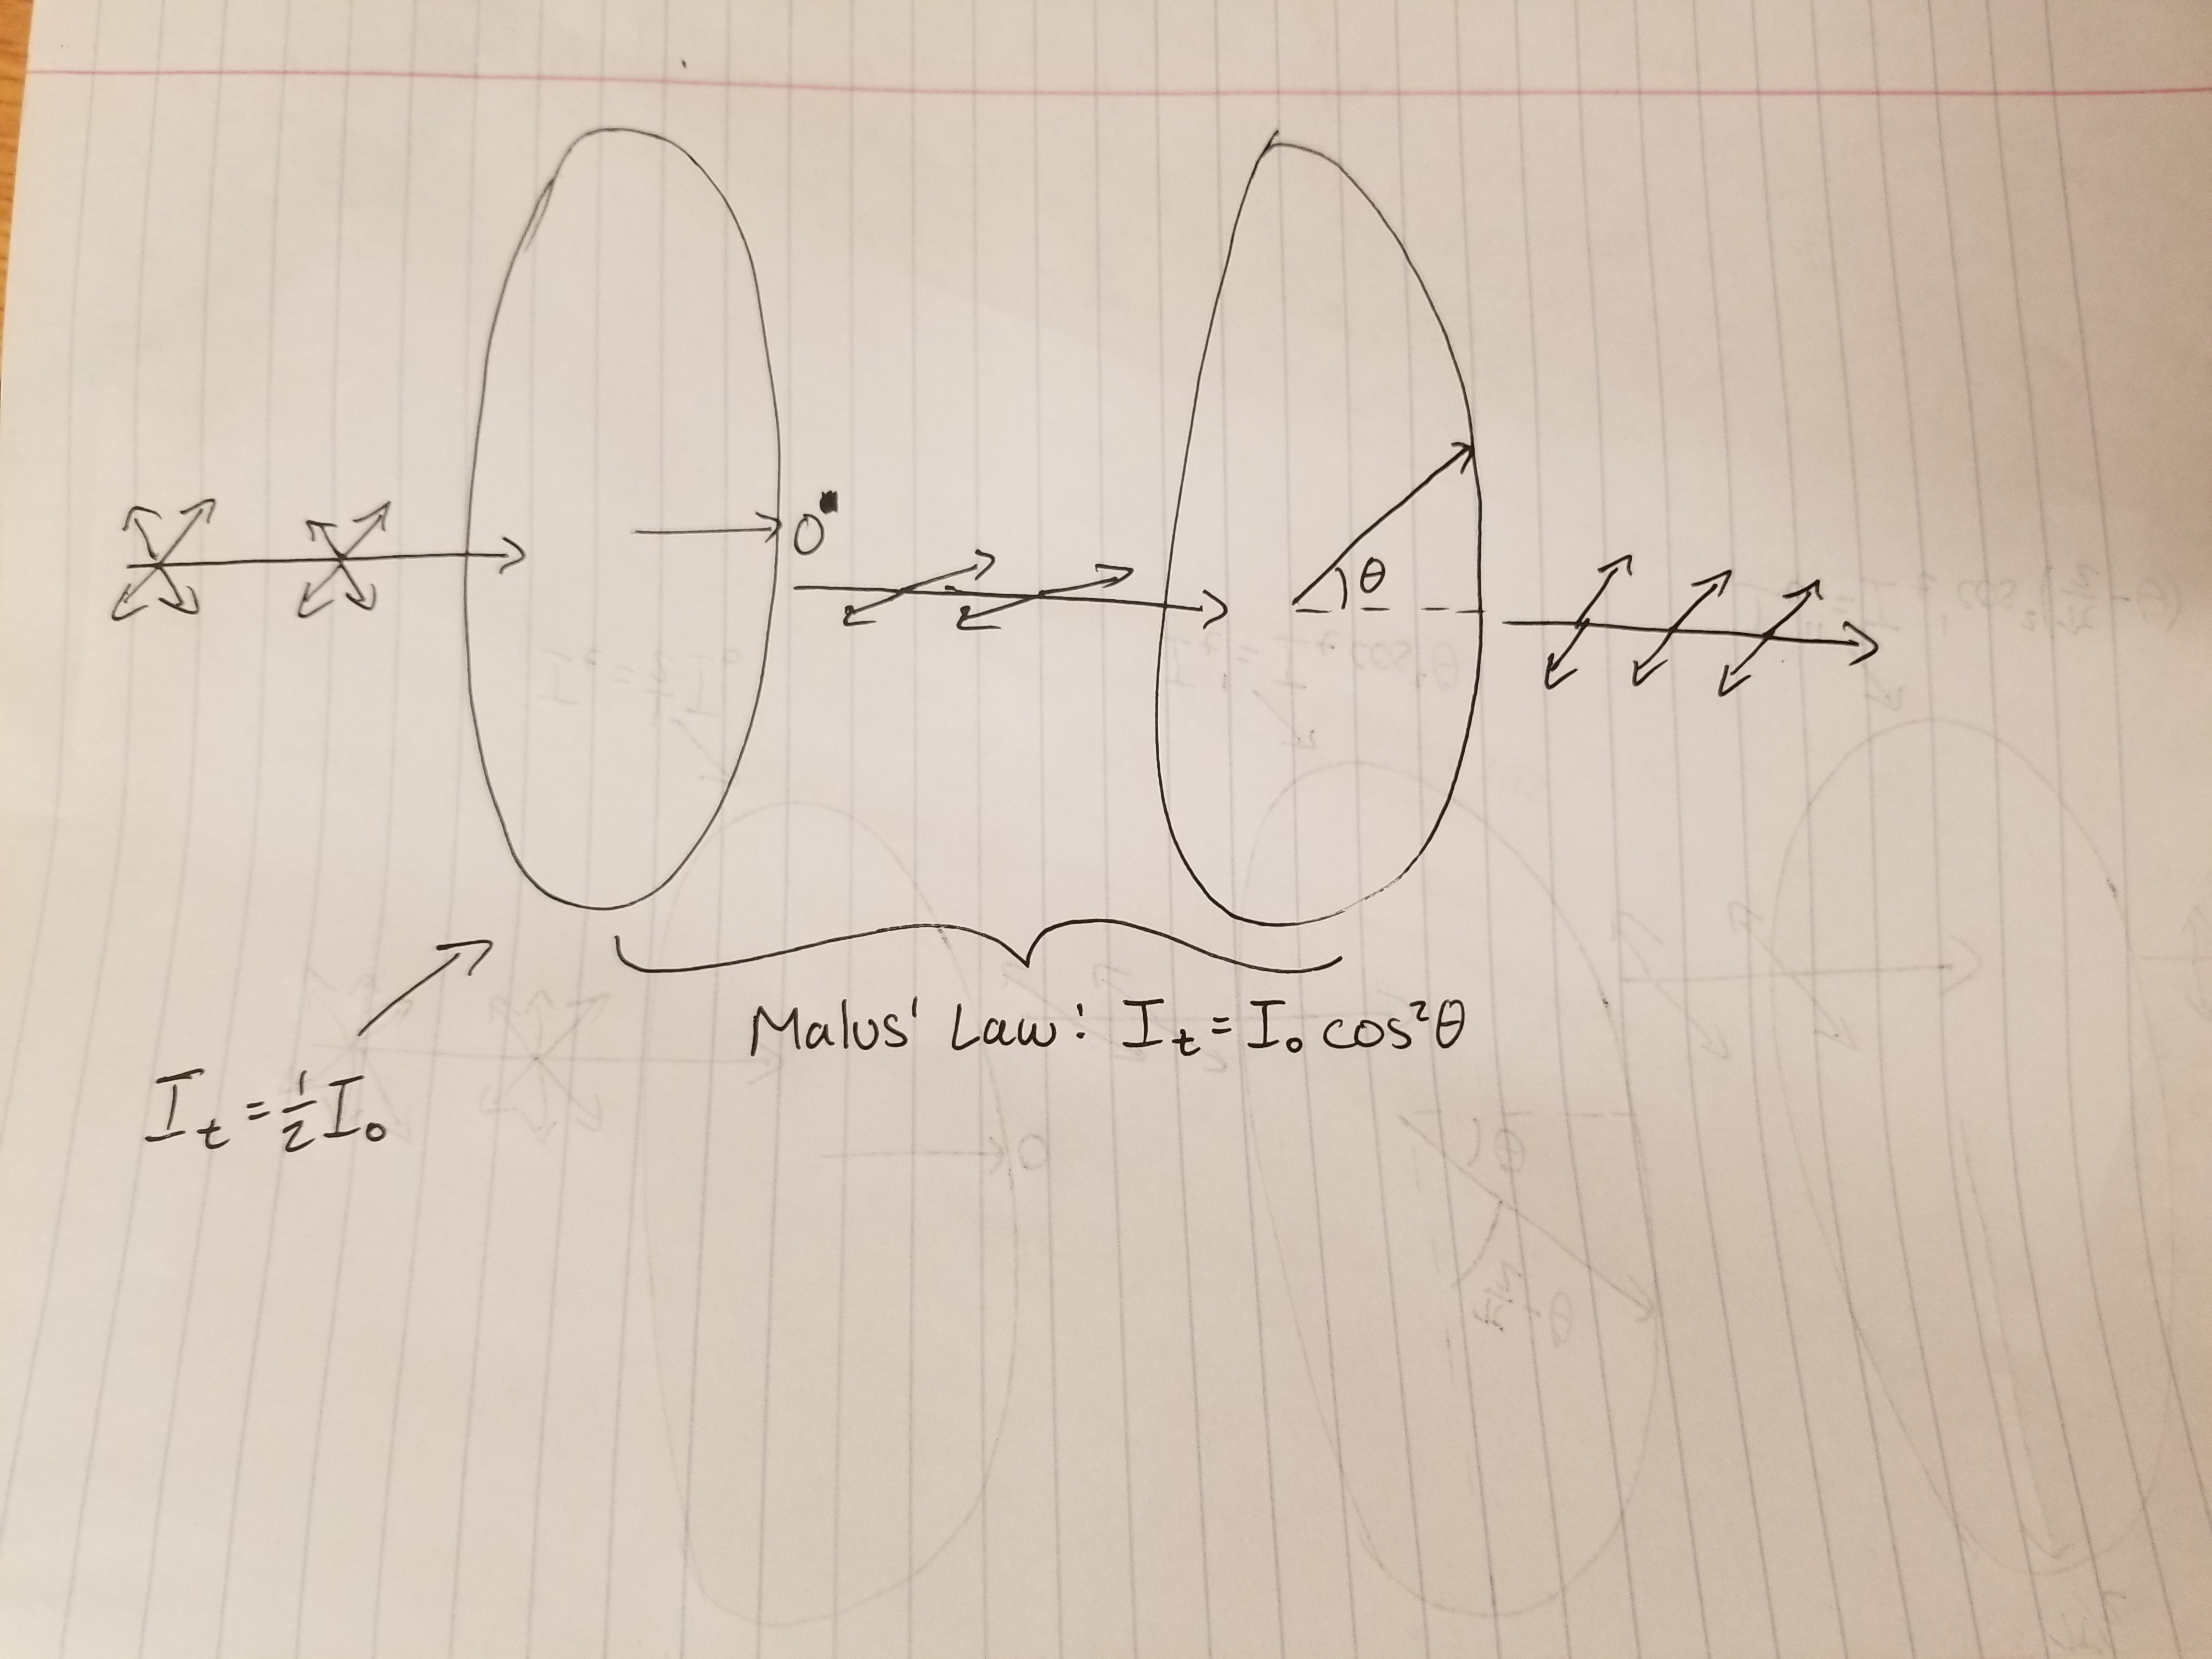 0
θ
Malus' Law: Iₜ = I₀ cos²θ
Iₜ = ½ I₀